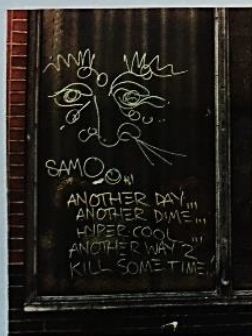 SAMO©...
ANOTHER DAY,,,
ANOTHER DIME,,,
HYPER-COOL ,,,
ANOTHER WAY 2
KILL SOME TIME,